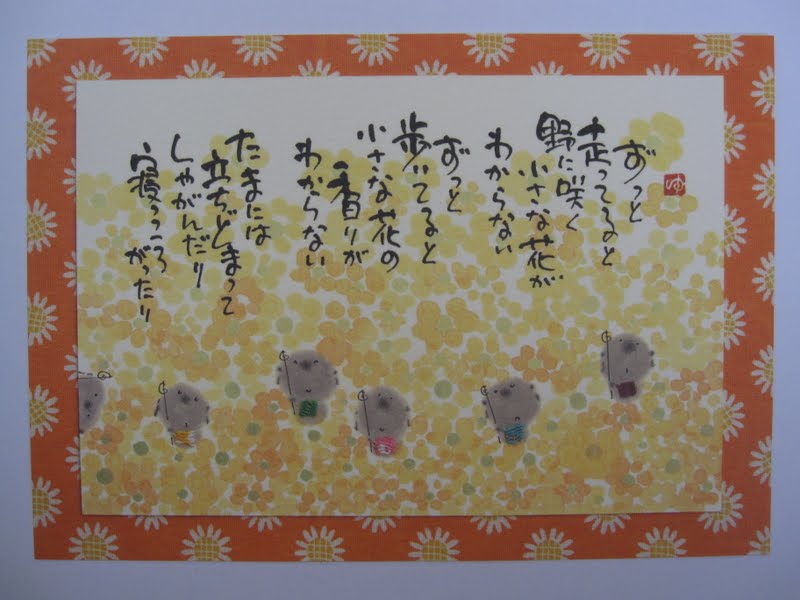 ずっと
走ってると
野に咲く
小さな花が
わからない
ずっと
歩いてると
小さな花の
香りが
わからない
たまには
立ちどまって
しゃがんだり
寝っころ
がったり
ゆ